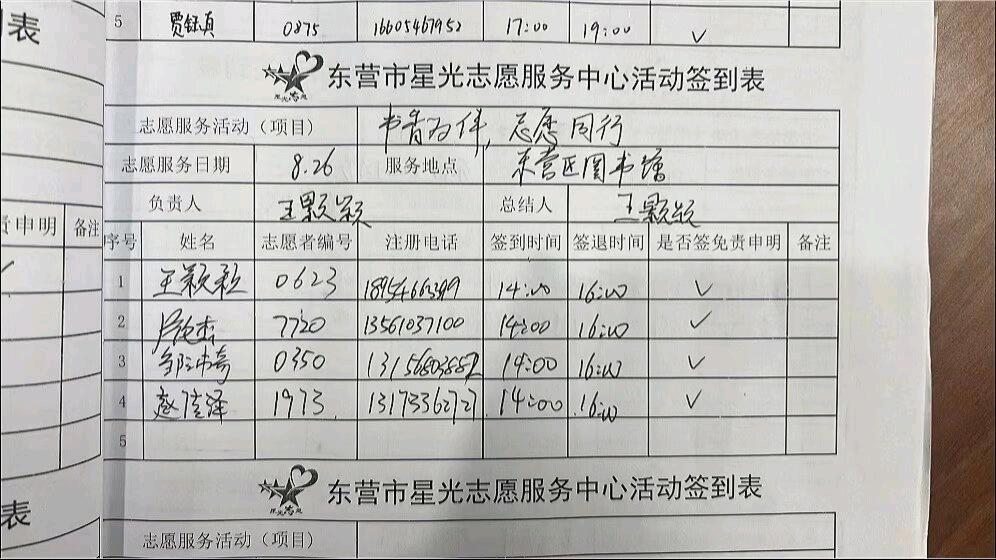 表
5 贾钰真 0875 16605467952 17:00 19:00 ✓
东营市星光志愿服务中心活动签到表
志愿服务活动（项目） 书香为伴,志愿同行
志愿服务日期 8.26 服务地点 东营区图书馆
负责人 王颖颖 总结人 王颖颖
责申明 备注
序号 姓名 志愿者编号 注册电话 签到时间 签退时间 是否签免责申明 备注
1 王颖颖 0623 14:00 16:00 ✓
2 7720 13561037100 14:00 16:00 ✓
3 0350 14:00 16:00 ✓
4 赵佳泽 1973 13173362727 14:00 16:00 ✓
5
东营市星光志愿服务中心活动签到表
表
志愿服务活动（项目）